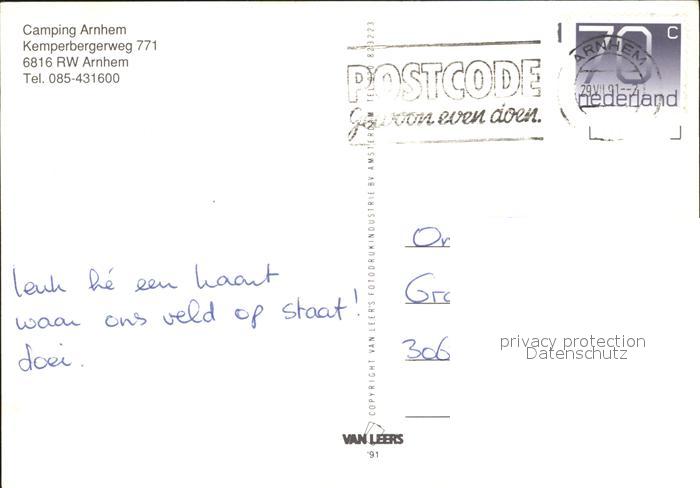 Camping Arnhem
Kemperbergerweg 771
6816 RW Arnhem
Tel. 085-431600
POSTCODE
Gewoon even doen.
70 c
ARNHEM
29 VII 91
nederland
leuk hé een kaart
waar ons veld op staat!
doei.
Or
Gro
306
privacy protection
Datenschutz
COPYRIGHT VAN LEER'S FOTODRUKINDUSTRIE BV AMSTERDAM
VAN LEERS
'91